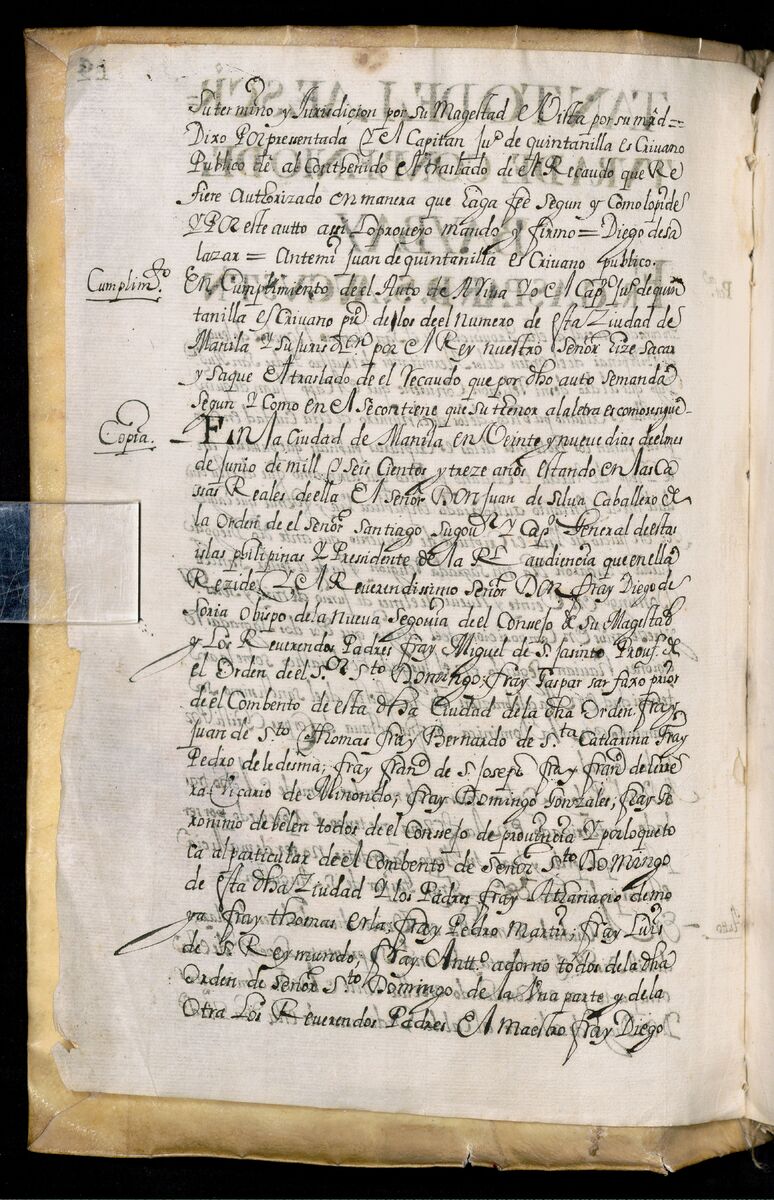 su termino y Jurisdicion por su Magestad Vista por su mrd =
Dixo Por presentada Y el Capitan Juº de quintanilla esCrivano
Publico de al Conthenido el traslado de el Recaudo que Re
fiere Authorizado en manera que haga fee segun y Como lo pide
Y Por este autto assi lo proveyo mando y firmo = Diego de sa
lazar = Antemi Juan de quintanilla esCrivano publico.
Cumplimto
En Cumplimiento de el Auto de arriva Yo el Capn Juº de quin
tanilla esCrivano puco de los de el Numero de esta Ziudad de
Manila Y su jurisdon por el Rey nuestro Señor hize sacar
y saque el traslado de el recaudo que por dho auto se manda
segun Y Como en el se contiene que su thenor a la letra es como se sigue
Copia.
En la Ciudad de Manila en Veinte y nueve dias de el mes
de Junio de mill Y seis Cientos y treze años estando en las Ca
sas Reales de ella el señor Don Juan de silva Caballero de
la Orden de el señor santiago su govor Y Capn General de estas
islas philipinas Y Presidente de la Rl audiencia que en ella
Rezide Y el Reverendissimo señor Don fray Diego de
soria Obispo de la nueva segovia de el Consejo de su Magestad
y Los Reverendos Padres fray Miguel de S. Jasinto Provl de
el Orden de el Sor Sto Domingo; fray Gaspar sarfate prior
de el Combento de esta dha Ciudad de la dha Orden. fray
Juan de Sto Thomas fray Bernardo de Sta Catharina fray
Pedro de ledesma; fray franco de S. Joseph fray franco de herre
ra Vicario de Minondo; fray Domingo Gonzales; fray Ge
ronimo de belen todos de el Consejo de provincia Y por lo que to
ca al particular de el Combento de señor Sto Domingo
de esta dha Ziudad Y los Padres fray Athanacio de mo
ya fray thomas fray Pedro Martir; fray Luis
de S. Reymundo, fray Antto adorno todos de la dha
Orden de señor Sto Domingo de la Una parte y de la
Otra Los Reverendos Padres el Maestro fray Diego